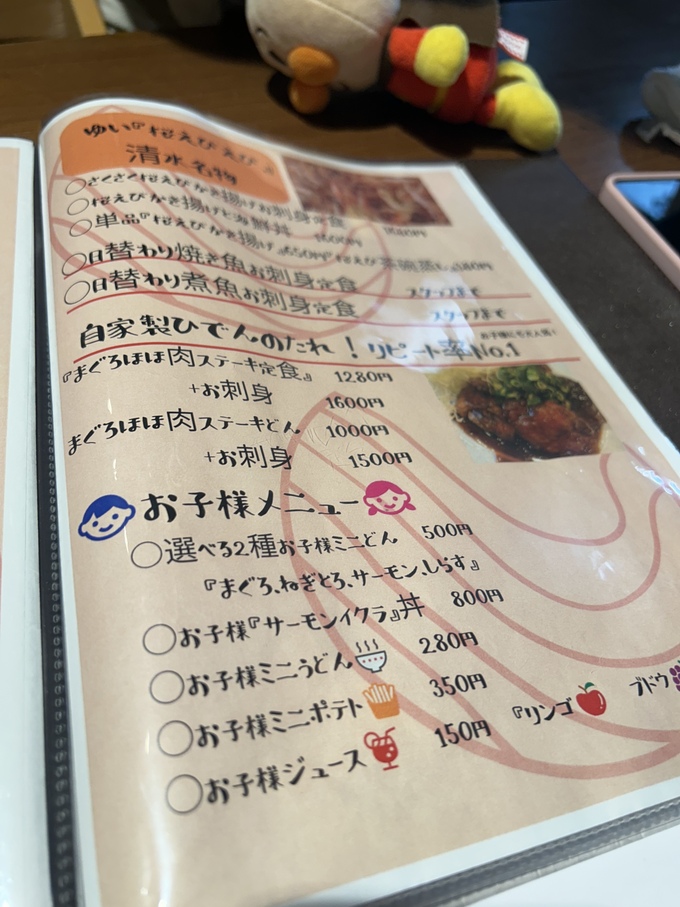 ゆい『桜えびえび』
清水名物
○さくさく桜えびかき揚げお刺身定食
○桜えびかき揚げと海鮮丼 1600円
○単品『桜えびかき揚げ』650円 桜えび茶碗蒸し
○日替わり焼き魚お刺身定食 スタッフまで
○日替わり煮魚お刺身定食 スタッフまで
自家製ひでんのたれ！リピート率No.1
『まぐろほほ肉ステーキ定食』 1280円
+お刺身 1600円
まぐろほほ肉ステーキどん 1000円
+お刺身 1500円
お子様メニュー
○選べる2種お子様ミニどん 500円
『まぐろ、ねぎとろ、サーモン、しらす』
○お子様『サーモンイクラ』丼 800円
○お子様ミニうどん 280円
○お子様ミニポテト 350円
○お子様ジュース 150円 『リンゴ ブドウ